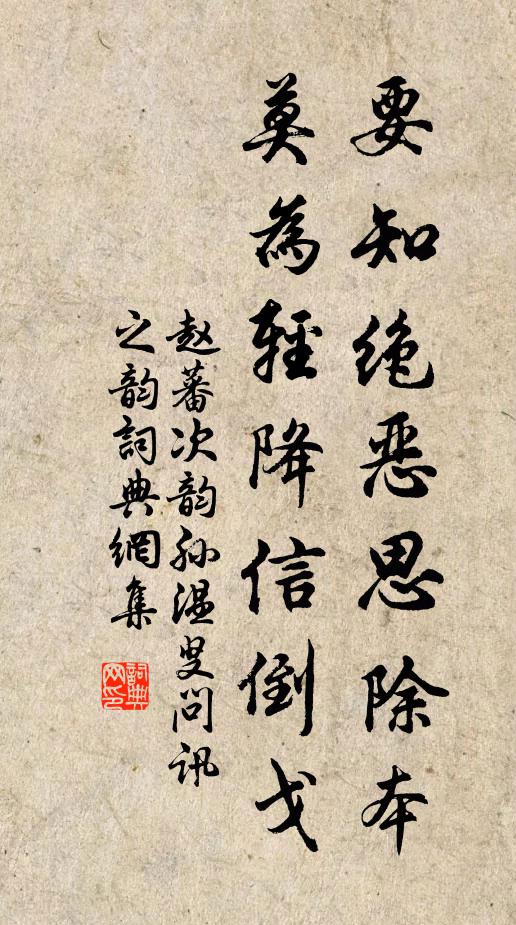 要知绝恶思除本
莫為輕降信倒戈
赵蕃次韵孙温叟问讯
之韵詞典網集
詞典
网印